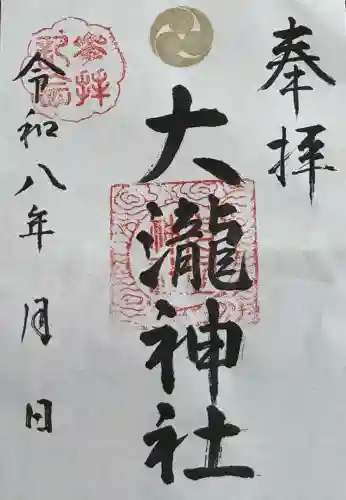 奉拝
大瀧神社
令和八年 月 日
参拝
記念